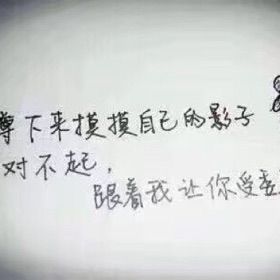 蹲下来摸摸自己的影子
对不起,
跟着我让你受委